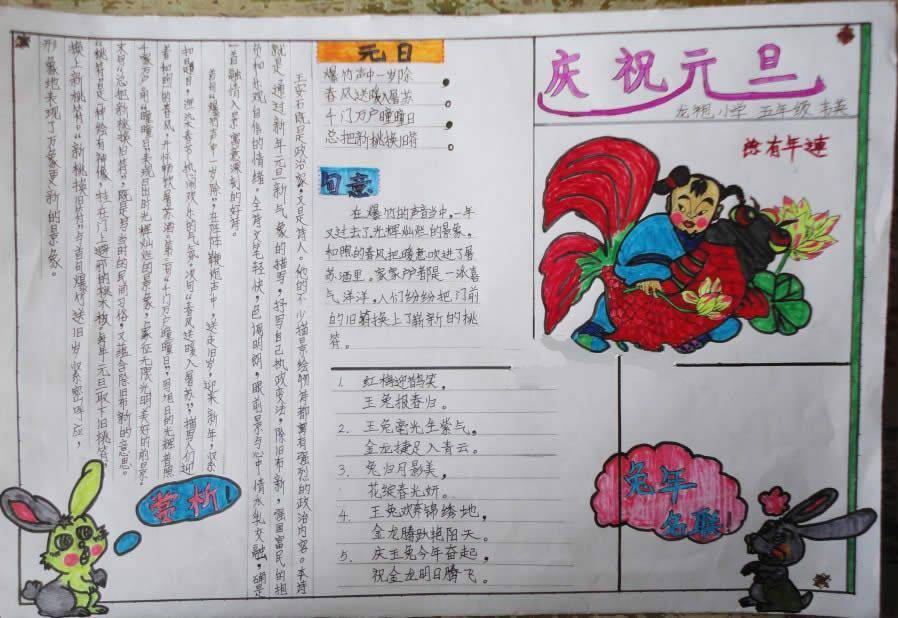 庆祝元旦
龙祖小学 五年级 韦英
年年有
元日
爆竹声中一岁除
春风送暖入屠苏
千门万户曈曈日
总把新桃换旧符
句意
在爆竹的声音当中,一年
又过去了,光辉灿烂的景象,
和照的春风把暖意吹进了屠
苏酒里。家家户户都是一派喜
气洋洋,人们纷纷把门前
的旧符换上了崭新的桃
符。
1. 红梅迎鹊笑,
王兔报春归。
2. 王兔毫光生紫气,
金龙捷足入青云。
3. 兔归月影美,
花绽春光妍。
4. 王兔欢奔锦绣地,
金龙腾跃艳阳天。
5. 庆王兔今年奋起,
祝金龙明日腾飞。
兔年
名联!
王安石既是政治家,又是诗人。他的不少描景绘物诗都寓有强烈的政治内容。本诗
就是通过新年元旦新气象的描写,抒写自己执政变法,除旧布新,强国富民的抱
负和乐观自信的情绪。全诗文笔轻快,色调明朗,眼前景与心中情水乳交融,确是
一首融情入景寓意深刻的好诗。
首句“爆竹声中一岁除”,在阵阵鞭炮声中,送走旧岁,迎来新年,紧
扣题目,迎来春节热闹欢乐的气氛。次句“春风送暖入屠苏”,描写人们迎
着和煦的春风,开怀畅饮屠苏酒。第三句“千门万户曈曈日”,写旭日的光辉普照
千家万户。“曈曈”表现日出时光辉灿烂的景象,象征无限光明美好的前景。
末句“总把新桃换旧符”,既是写当时的民间习俗,又蕴含除旧布新的意思。
“桃符”是一种绘有神像,挂在门上避邪的桃木板。每年元旦取下旧桃符,
换上新桃符。“新桃换旧符”与首句爆竹送旧岁紧密呼应,
形象地表现了万象更新的景象。
赏析!